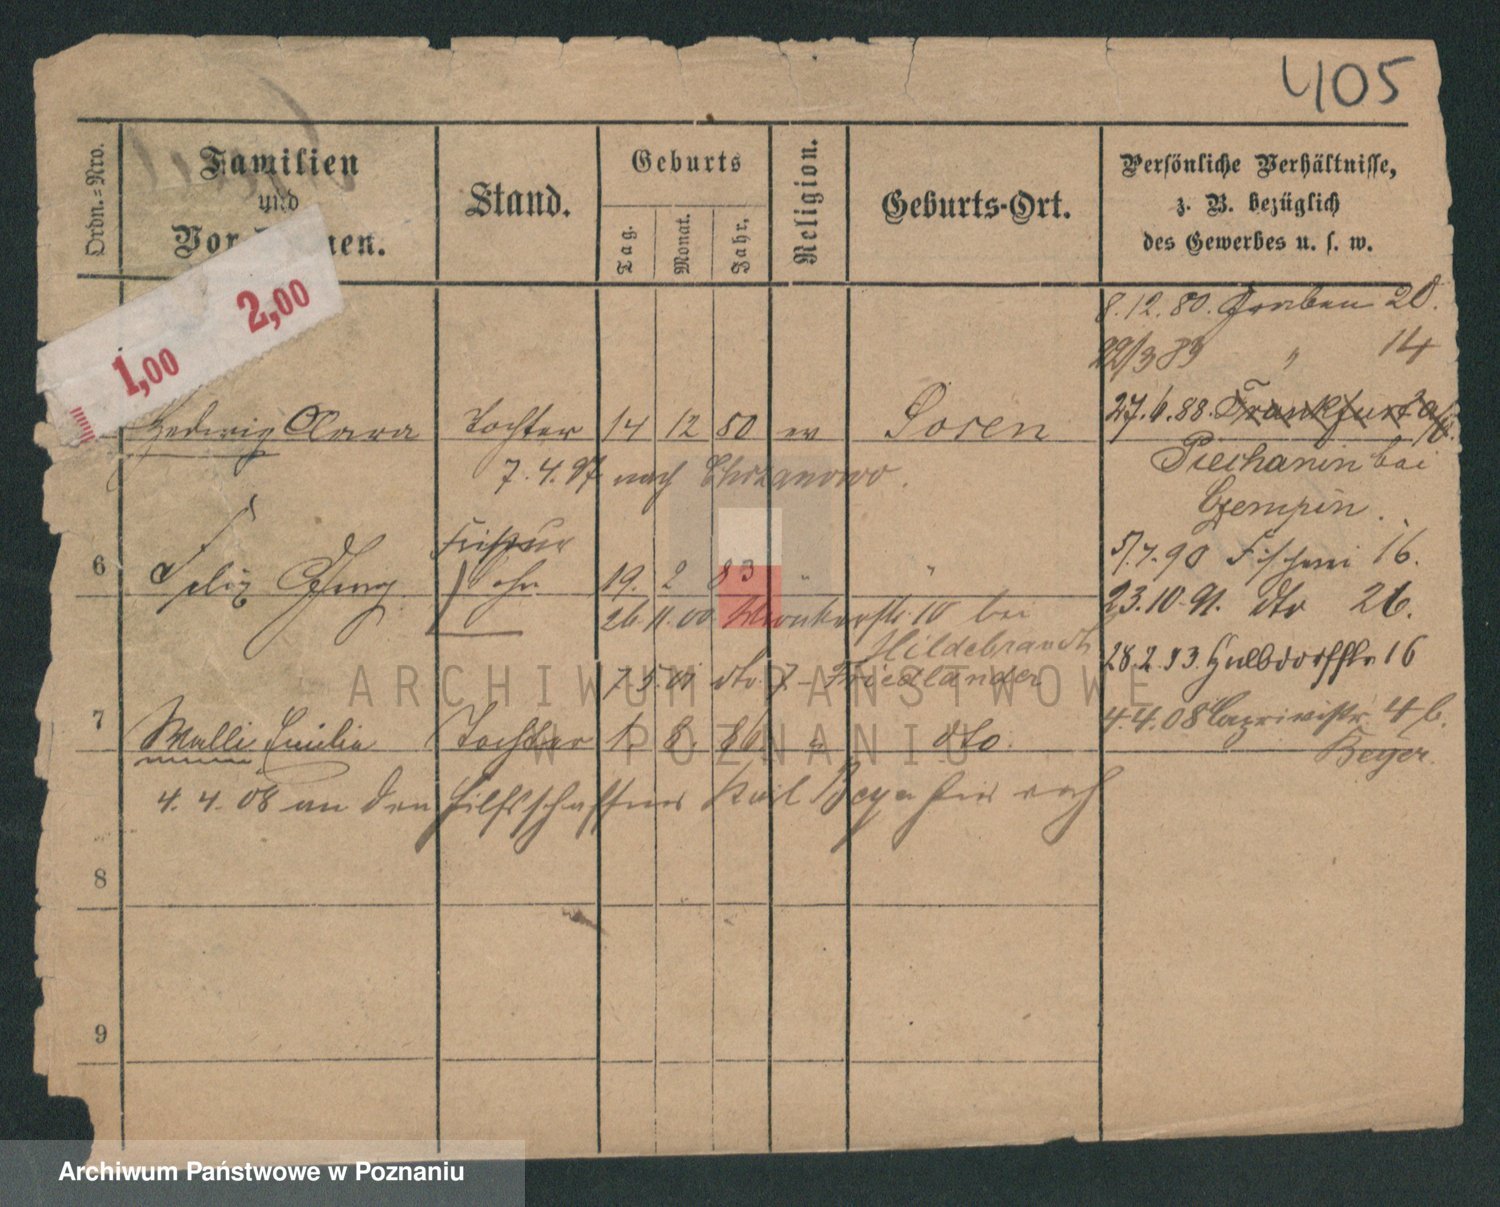 405
Ordn.-Nro.
Familien
und
Vor-Namen.
Stand.
Geburts
Tag.
Monat.
Jahr.
Religion.
Geburts-Ort.
Persönliche Verhältnisse,
z. B. bezüglich
des Gewerbes u. s. w.
2,00
1,00
8.12.80. Graben 20.
22/3 83 " 14
27.6.88. Frankfurt a/O.
Hedwig Clara Tochter 14 12 80 ev Posen
Piechanin bei
7.4.97 nach Chrzanowo.
Czempin.
Friseur
5/7.90 Fischerei 16.
6 Felix Georg Sohn 19. 2 83 " "
23.10.91. dto 26.
26.11.00. Wronkerstr. 10 bei
Hildebrandt
28.2.93. Halbdorfstr 16
7.5.01 dto. 7 - Friedländer
7 Walli Emilie Tochter 1. 8. 86 " dto.
4.4.08 4 b.
Beyer.
4.4.08 an den Karl Beyer
8
9
ARCHIWUM PAŃSTWOWE
W POZNANIU
Archiwum Państwowe w Poznaniu